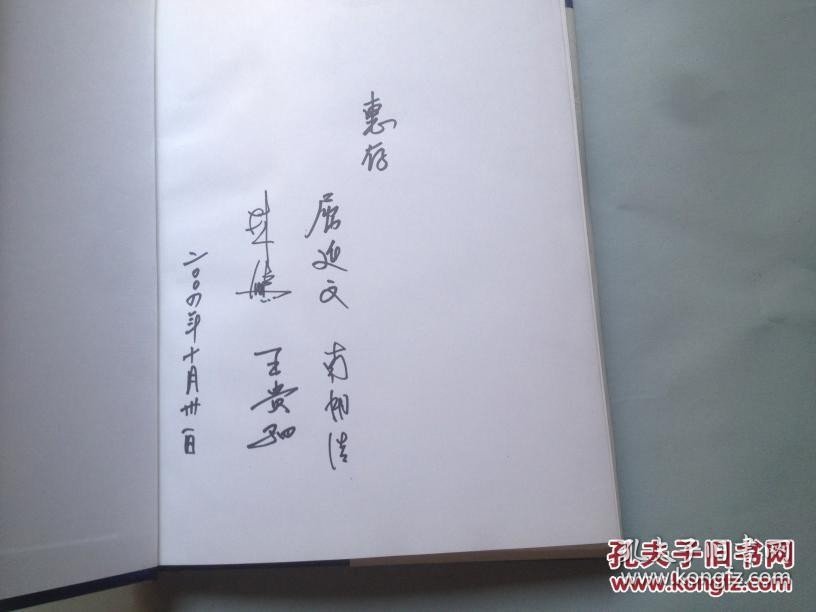 惠存
屈延文 南相浩
王贵驷
二〇〇四年十月卅一日
孔夫子旧书网
www.kongfz.com